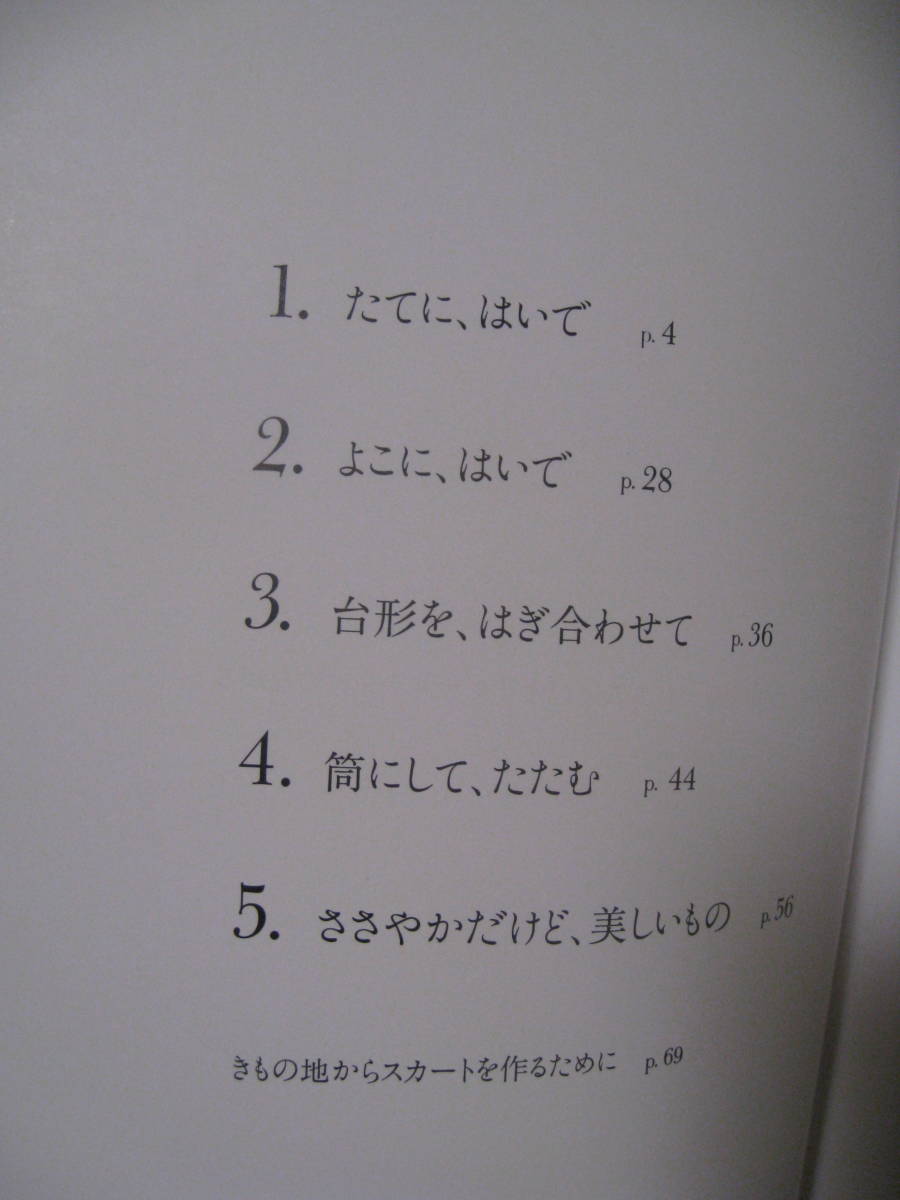 1. たてに、はいで p.4
2. よこに、はいで p.28
3. 台形を、はぎ合わせて p.36
4. 筒にして、たたむ p.44
5. ささやかだけど、美しいもの p.56
きもの地からスカートを作るために p.69